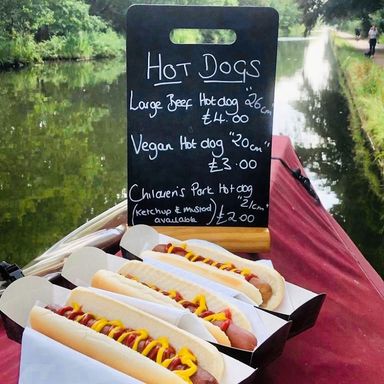 Hot Dogs
Large Beef Hotdog "26cm"
£4.00
Vegan Hotdog "20cm"
£3.00
Children's Pork Hotdog
(Ketchup & mustard "21cm"
available) £2.00